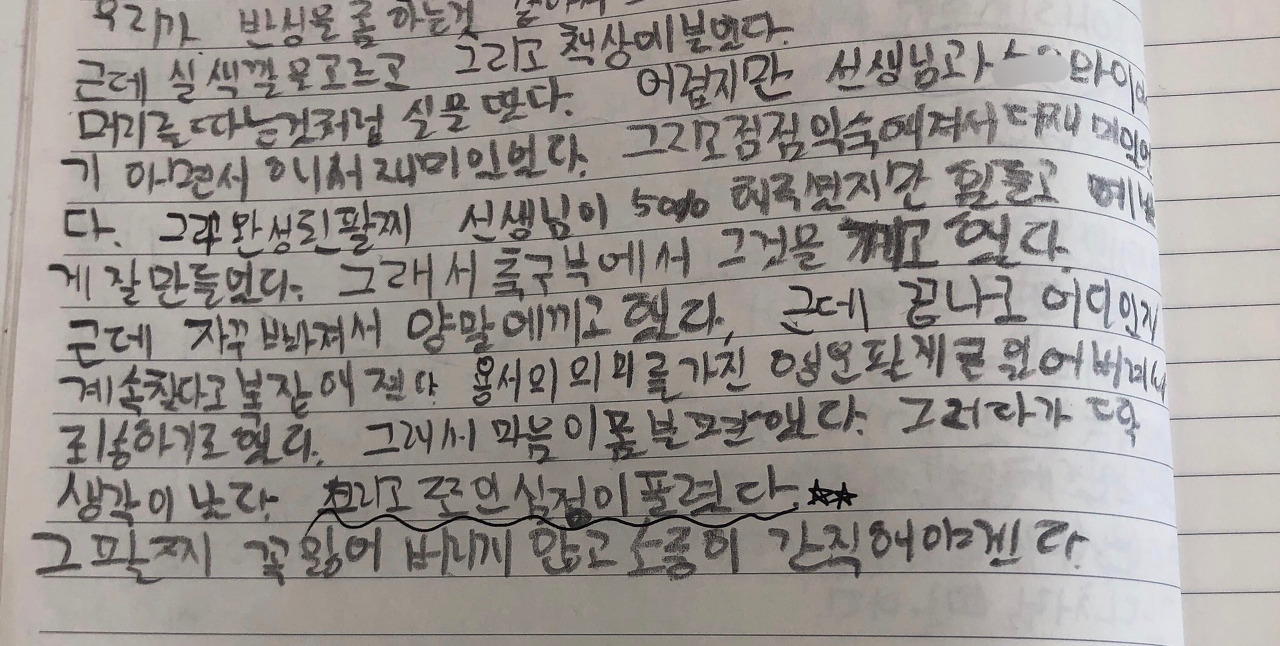 우리가 반성을 좀 하는것
근데 실 색깔을 고르고 그리고 책상에 붙였다.
머리를 따는것처럼 실을 땄다. 어렵지만 선생님과 와이
기 하면서 하니써 재미있었다. 그리고점점익숙에져서 더재미있었
다. 그리고 완성된팔찌 선생님이 50% 해주셨지만 힘들고 예쁘
게 잘만들었다. 그래서 축구부에서 그것을 끼고 했다.
근데 자꾸 빠져서 양말에끼고 했다, 근데 끝나고 어디인지
계속찾다고 복잡에 졌다 용서의 의미를 가진 팔찌를 잃어버려서
죄송하기로 했다. 그래서 마음이 좀 불편했다. 그러다가 딱
생각이 났다. 그리고 모든의심점이 풀렸다.
그 팔찌 꼭 잃어 버리지 않고 소중히 간직해야겐다.